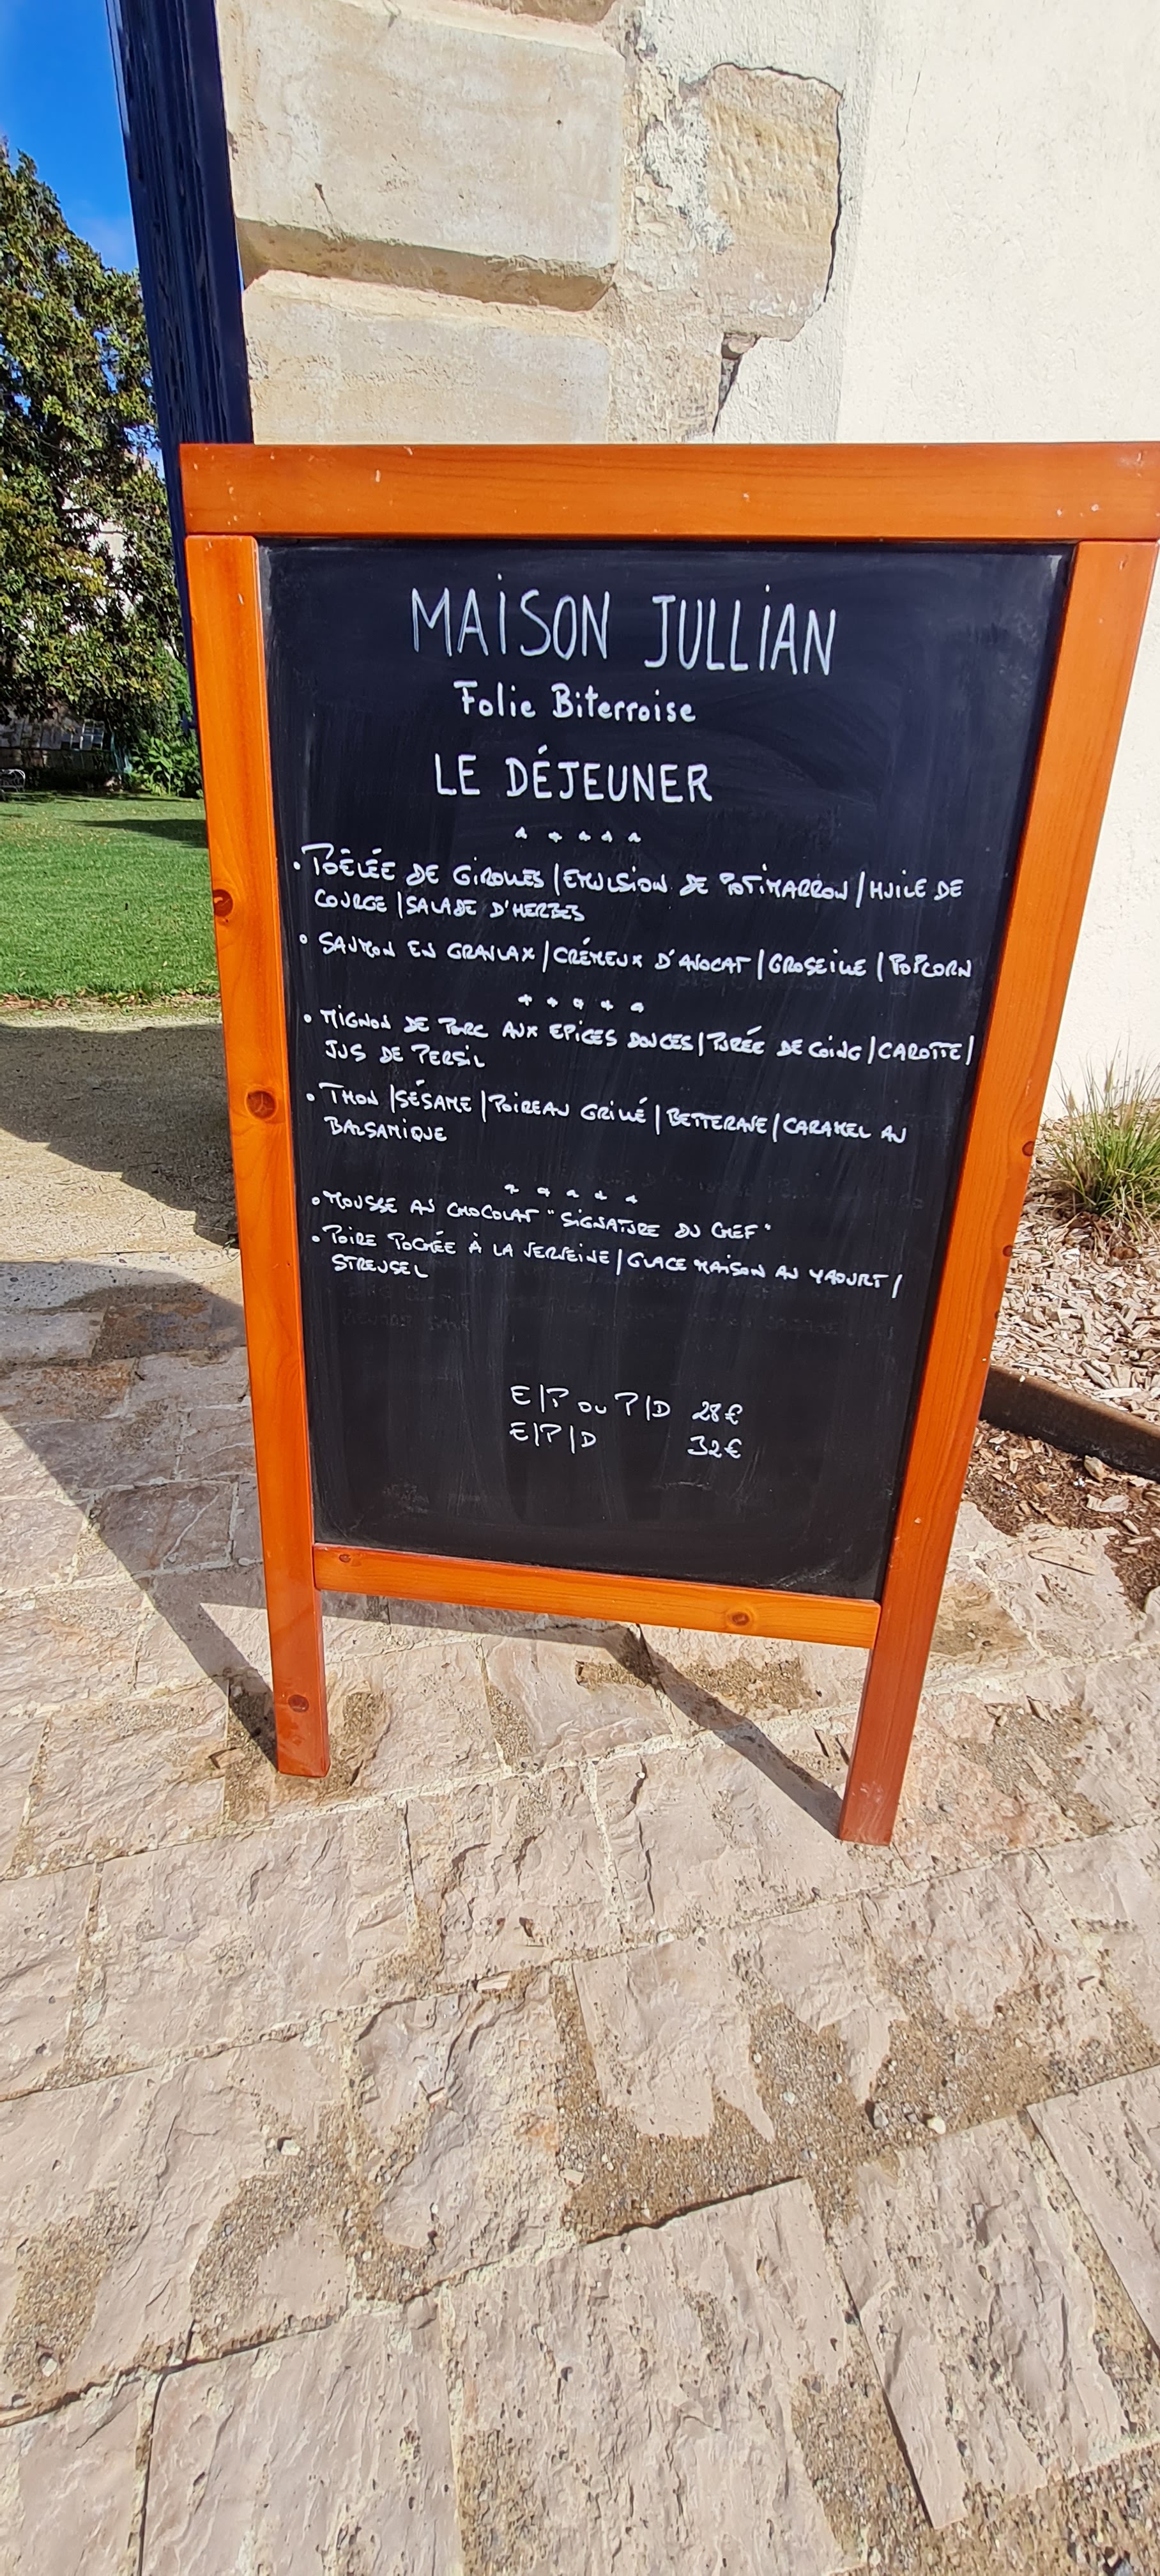 MAISON JULLIAN
Folie Biterroise
LE DÉJEUNER
• POÊLÉE DE GIROLLES / EMULSION DE POTIMARRON / HUILE DE
COURGE / SALADE D'HERBES
• SAUMON EN GRAVLAX / CRÉMEUX D'AVOCAT / GROSEILLE / POPCORN
• MIGNON DE PORC AUX EPICES DOUCES / PURÉE DE COING / CAROTTE /
JUS DE PERSIL
• THON / SÉSAME / POIREAU GRILLÉ / BETTERAVE / CARAMEL AU
BALSAMIQUE
• MOUSSE AU CHOCOLAT "SIGNATURE DU CHEF"
• POIRE POCHÉE À LA VERVEINE / GLACE MAISON AU YAOURT /
STREUSEL
E/P OU P/D 28€
E/P/D 32€